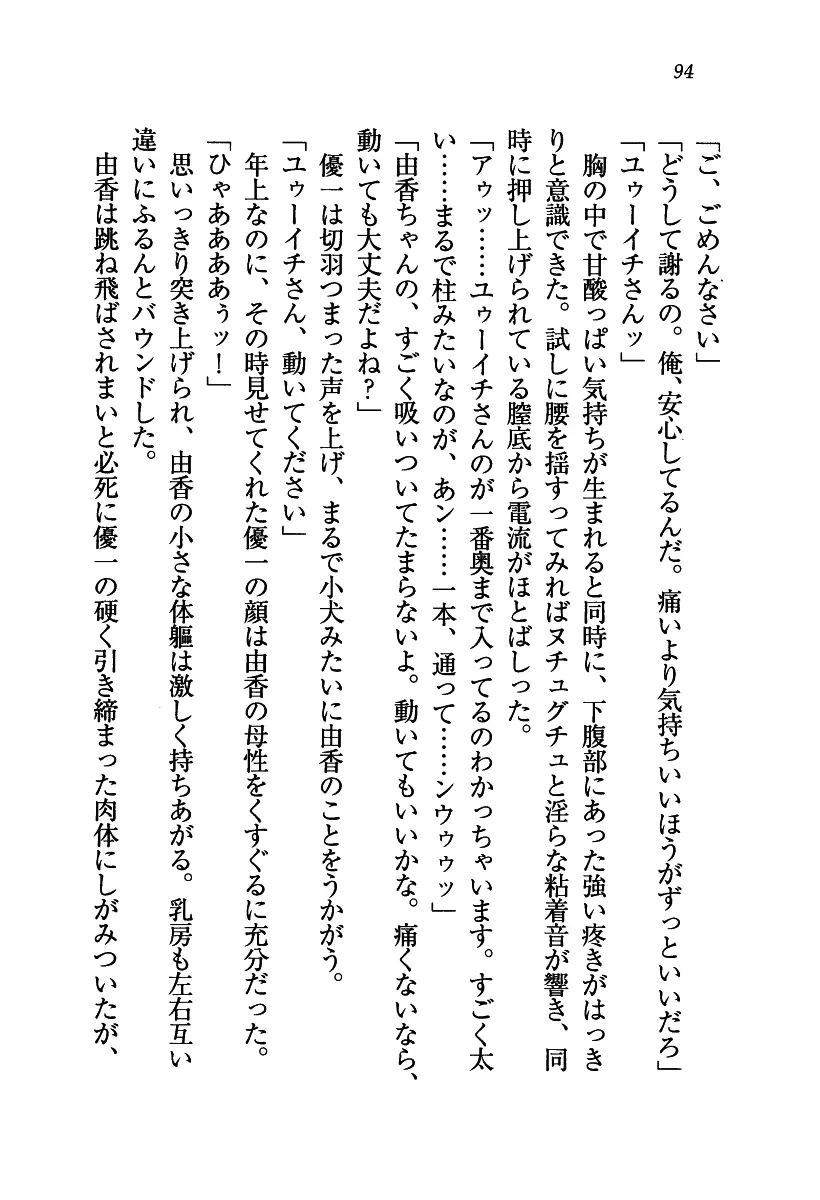 94
「ご、ごめんなさい」
「どうして謝るの。俺、安心してるんだ。痛いより気持ちいいほうがずっといいだろ」
「ユゥーイチさんッ」
胸の中で甘酸っぱい気持ちが生まれると同時に、下腹部にあった強い疼きがはっき
りと意識できた。試しに腰を揺すってみればヌチュグチュと淫らな粘着音が響き、同
時に押し上げられている膣底から電流がほとばしった。
「アゥッ……ユゥーイチさんのが一番奥まで入ってるのわかっちゃいます。すごく太
い……まるで柱みたいなのが、あン……一本、通って……ンウゥゥッ」
「由香ちゃんの、すごく吸いついてたまらないよ。動いてもいいかな。痛くないなら、
動いても大丈夫だよね？」
優一は切羽つまった声を上げ、まるで小犬みたいに由香のことをうかがう。
「ユゥーイチさん、動いてください」
年上なのに、その時見せてくれた優一の顔は由香の母性をくすぐるに充分だった。
「ひゃああああぅッ！」
思いっきり突き上げられ、由香の小さな体軀は激しく持ちあがる。乳房も左右互い
違いにふるんとバウンドした。
由香は跳ね飛ばされまいと必死に優一の硬く引き締まった肉体にしがみついたが、